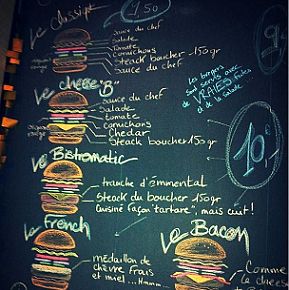 Le Classique
7,50
Sauce du chef
Salade
Tomate
cornichons
Steack boucher 150gr
Sauce du chef
Les burgers
sont servis avec
de VRAIES frites
et de la salade...
Le cheese "B"
sauce du chef
Salade
tomate
cornichons
Chedar
Steack boucher 150gr
10
Le Bistromatic
tranche d'émmental
Steak du boucher 150gr
Cuisiné façon "tartare", mais cuit!
Le French
médaillon de
chèvre frais
et miel ... Hmmm...
Le Bacon
Comme
la cheese